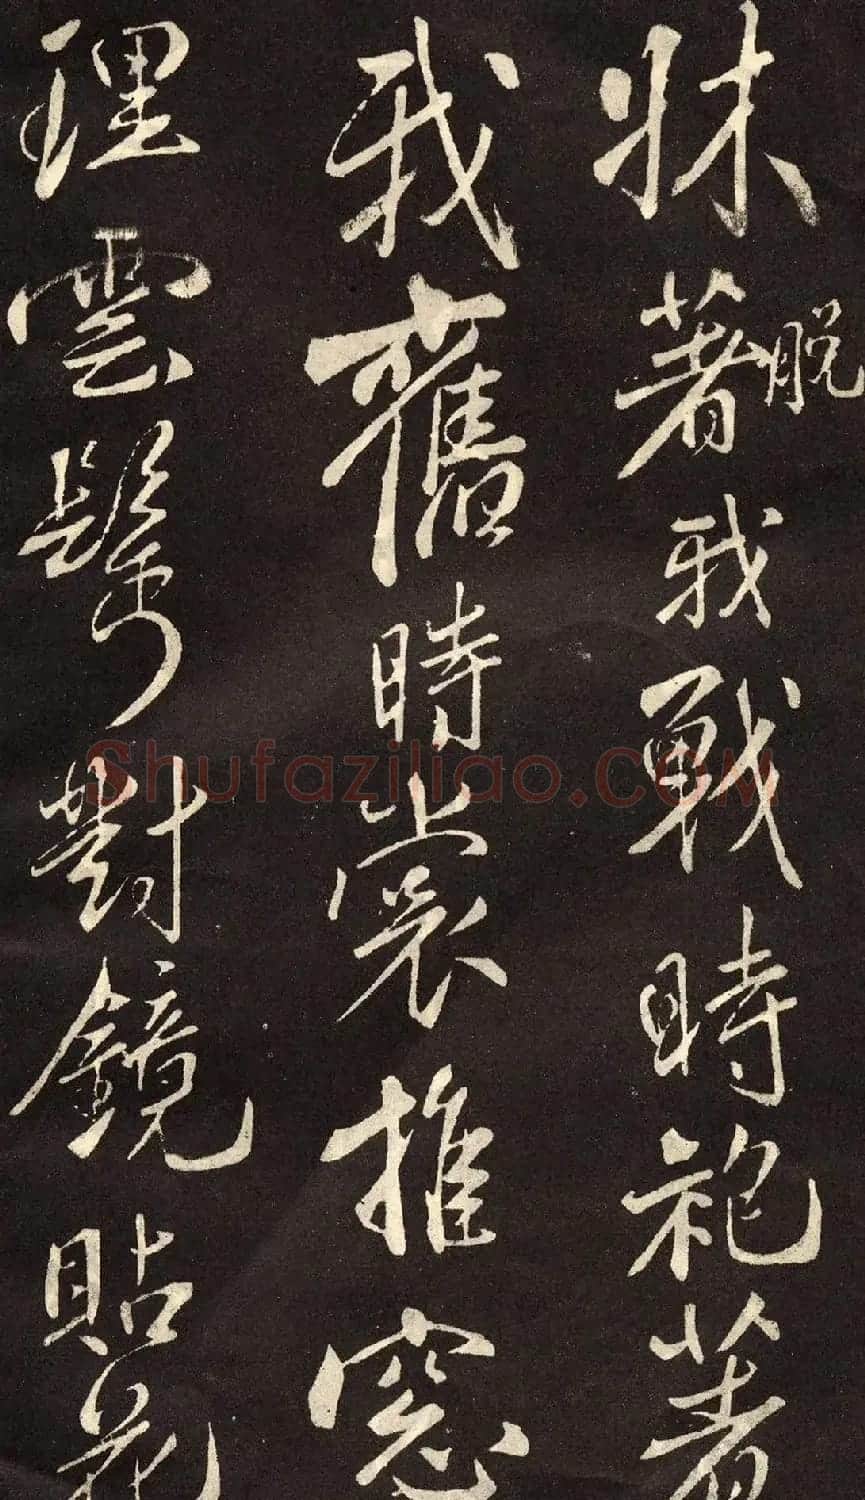 牀著脱我戰時袍著
我舊時裳推窻
理雲鬢對鏡貼花
Shufaziliao.COM